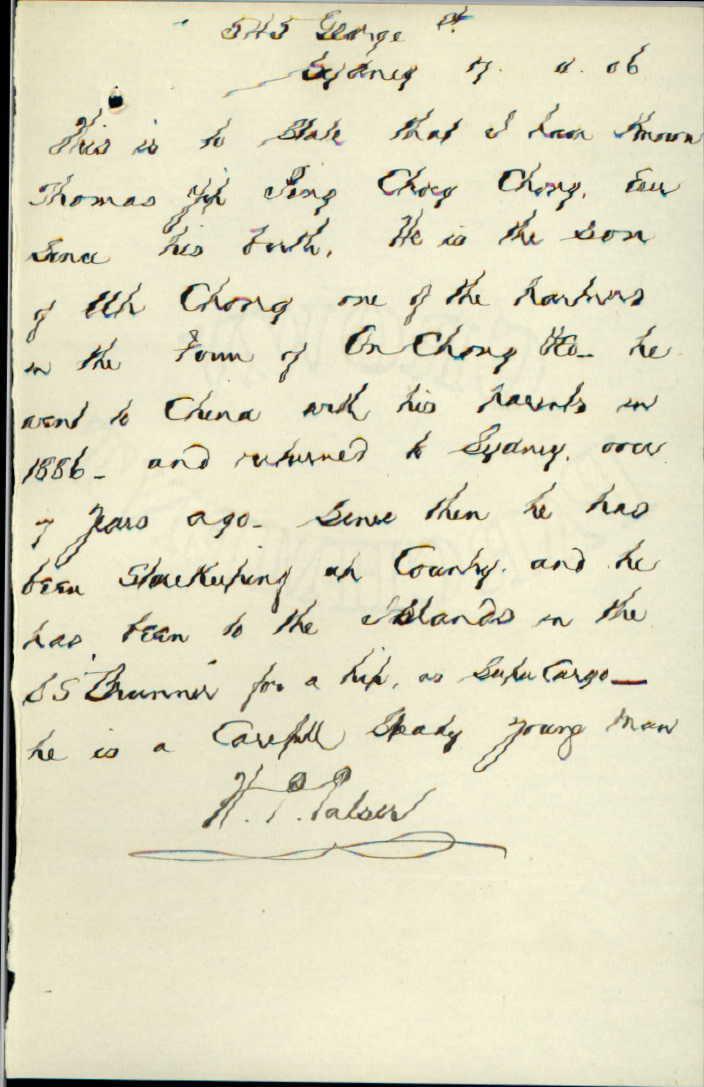 545 George St
Sydney 7. 11. 06
This is to State that I have Known
Thomas Yip Ping Choey Chong, Ever
Since his birth, He is the Son
of Ah Chong one of the partners
in the Firm of On Chong &Co_ he
went to China with his parents in
1886_ and returned to Sydney, over
7 years ago_ Since then he has
been StoreKeeping up Country. and he
has, been to the Islands in the
SS "Brunner" for a trip, as SuperCargo_
he is a Carefull Steady young man
W. P. Palser